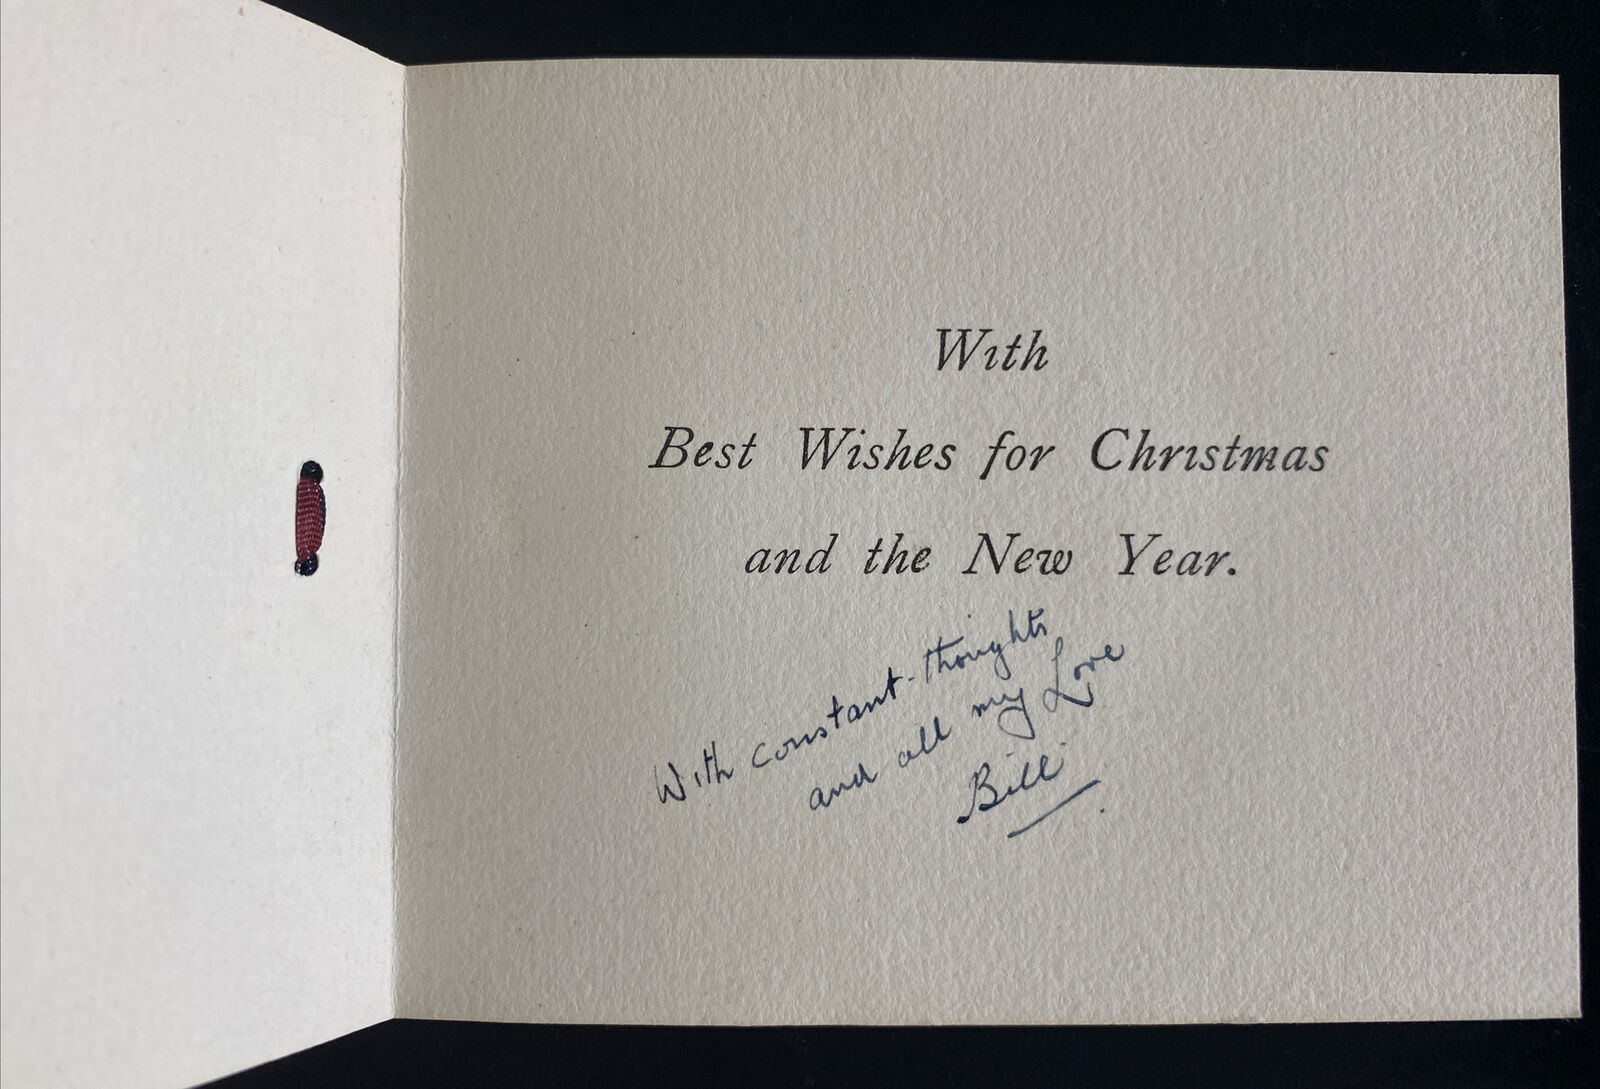 With
Best Wishes for Christmas
and the New Year.
With constant thoughts
and all my Love
Bill